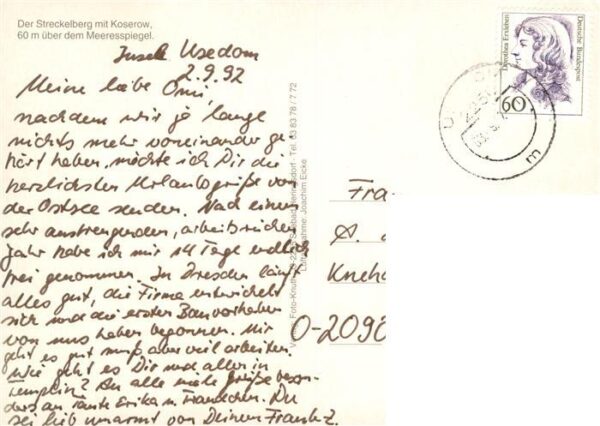 Der Streckelberg mit Koserow,
60 m über dem Meeresspiegel.
Insel Usedom
2.9.92
Meine liebe Omi,
nachdem wir ja lange
nichts mehr voneinander ge
hört haben, möchte ich Dir die
herzlichsten Urlaubsgrüße von
der Ostsee senden. Nach einem
sehr anstrengenden, arbeitsreichen
Jahr habe ich mir 14 Tage endlich
frei genommen. In Dresden läuft
alles gut, die Firma entwickelt
sich und die ersten Bauvorhaben
von uns haben begonnen. Mir
geht es gut muß aber viel arbeiten.
Wie geht es Dir und allen in
Templin? An alle viele Grüße beson-
ders an Tante Erika u. Frauchen. Du
sei lieb umarmt von Deinem Frank Z.
Foto-Knuth Tel. 63 83 78 / 7 72
Luftaufnahme: Joachim Eicke
Dorothea Erxleben
Deutsche Bundespost
60
Fra
A.
O-2090